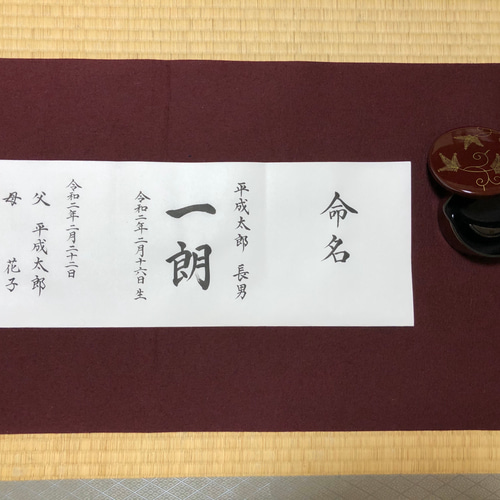 命名
平成太郎 長男
一朗
令和二年二月十六日生
令和二年二月二十二日
父 平成太郎
母 花子